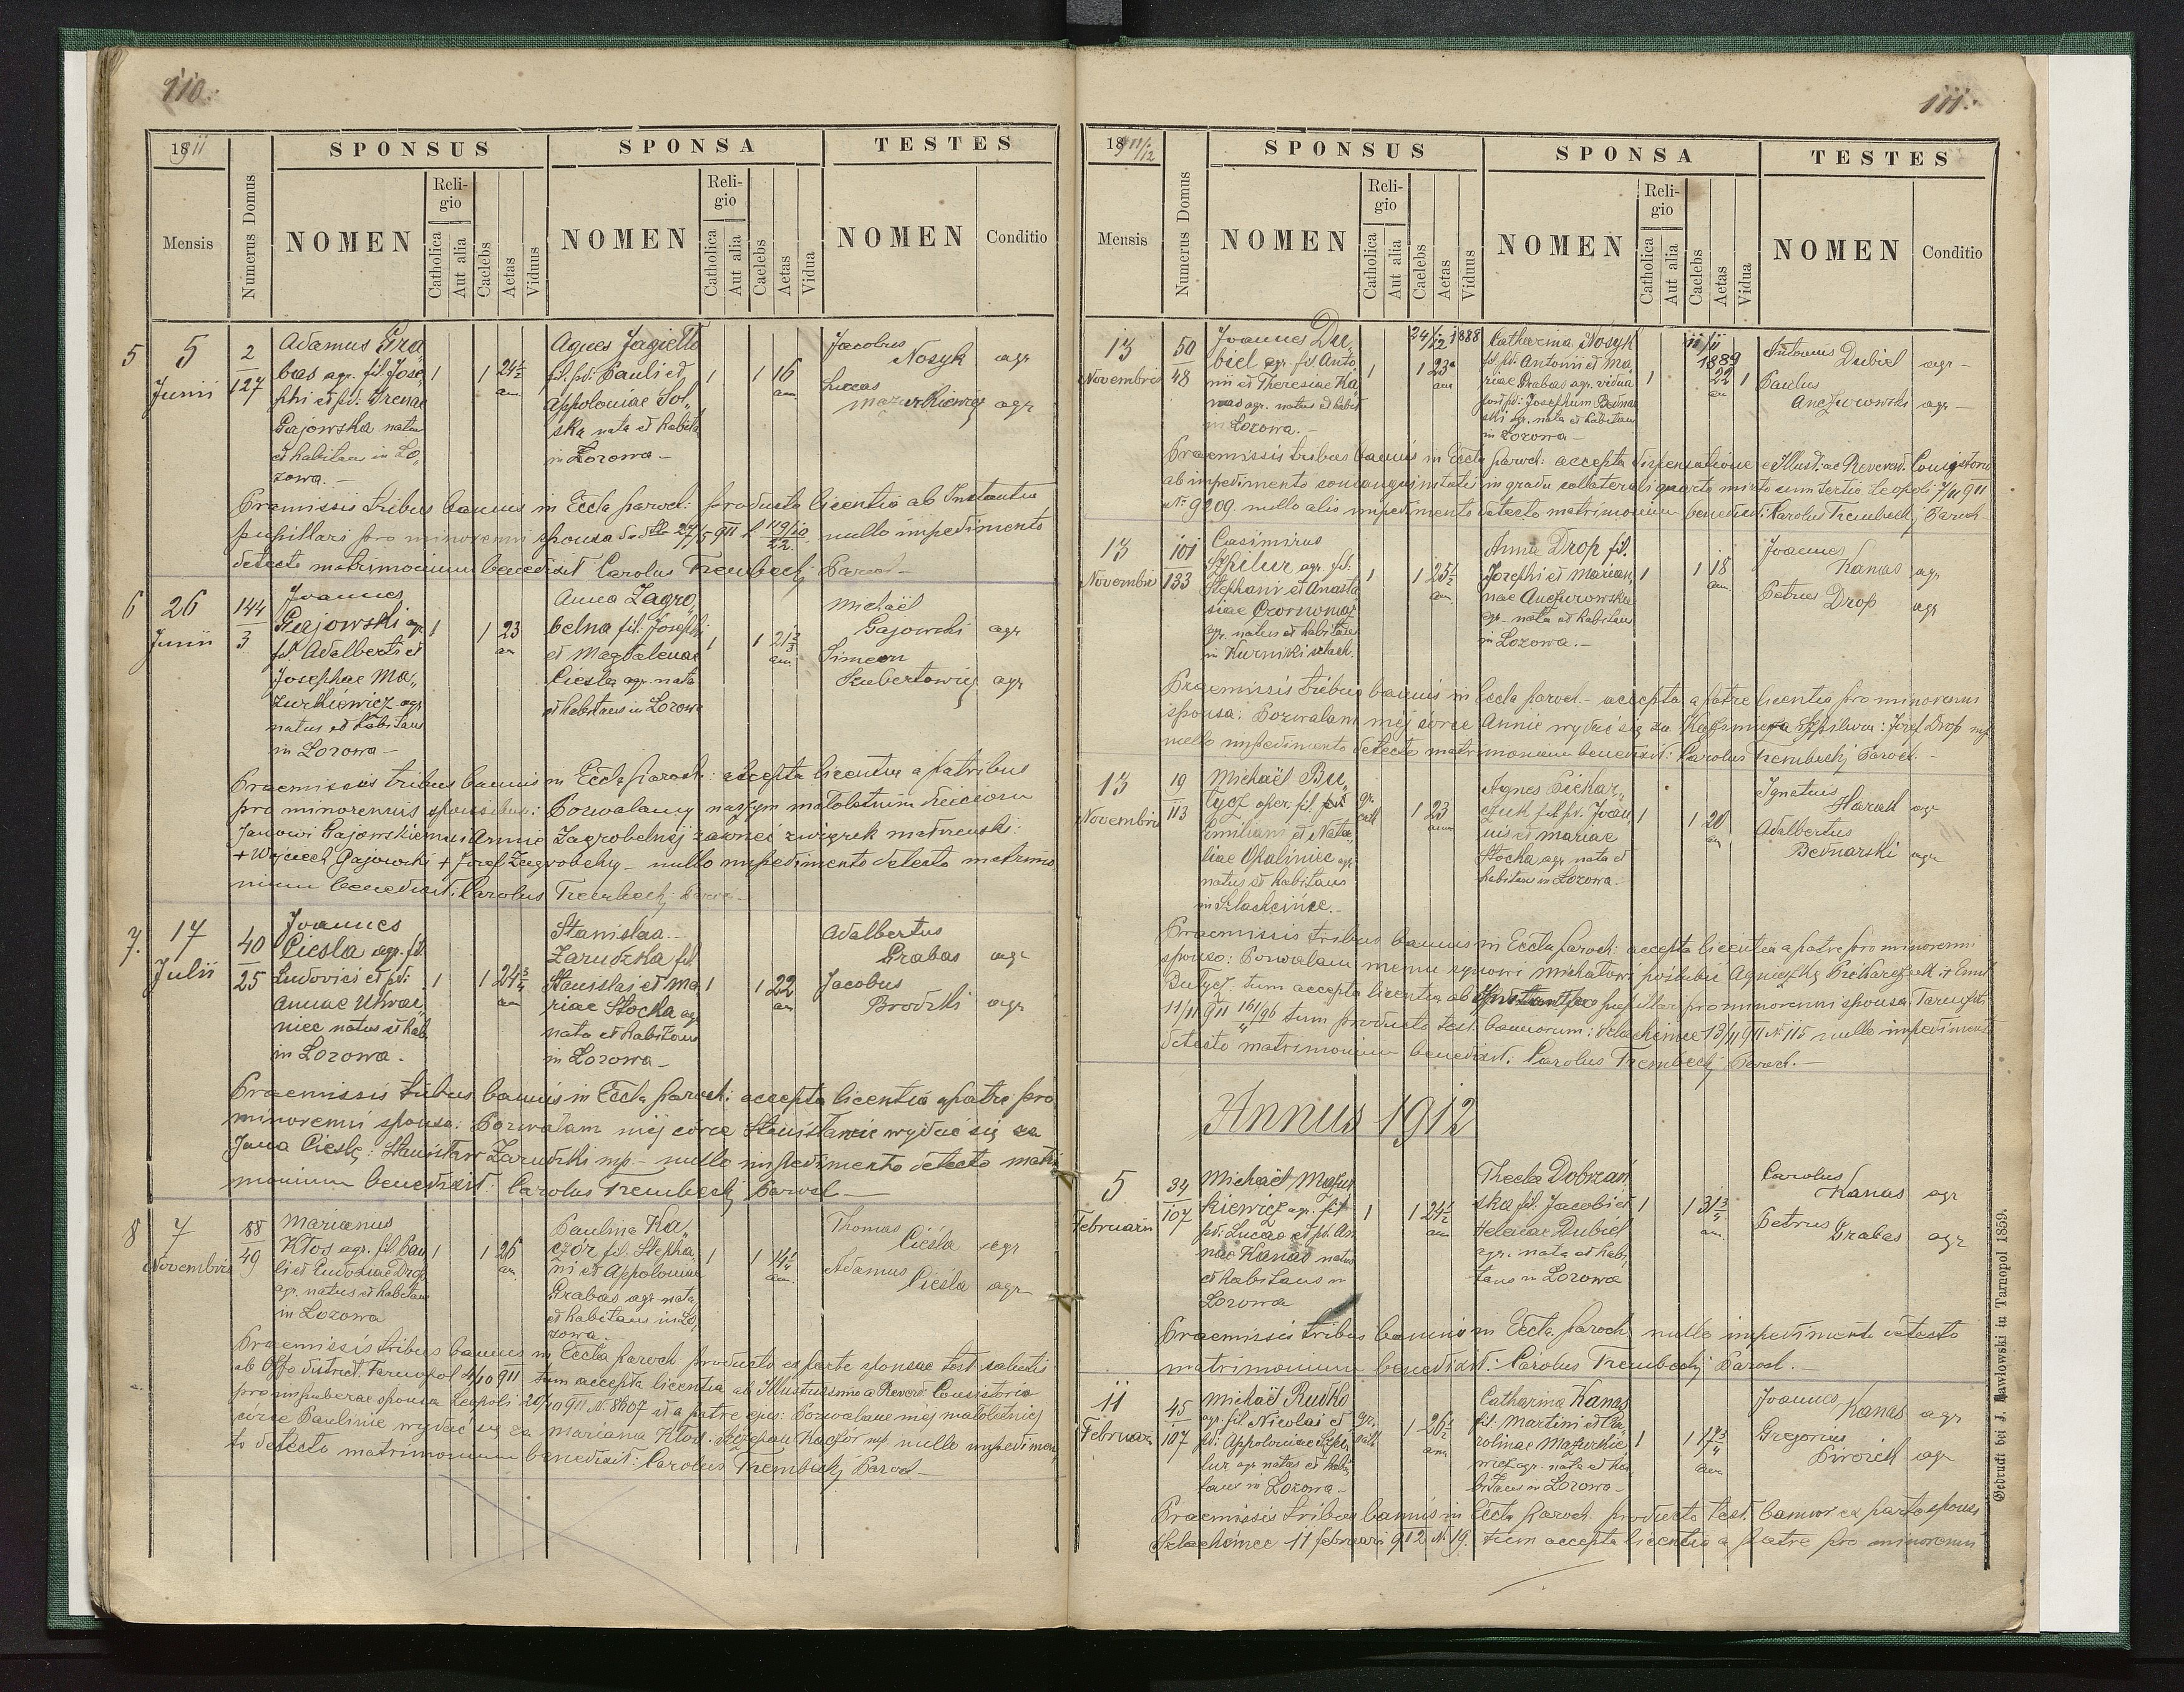 110.
1911
SPONSUS
SPONSA
TESTES
Mensis
Numerus Domus
NOMEN
Religio
Catholica
Aut alia
Caelebs
Aetas
Viduus
NOMEN
Religio
Catholica
Aut alia
Caelebs
Aetas
Vidua
NOMEN
Conditio
5
5
Junii
2
127
Adamus Gra„
bas agr. fil. Jose„
phi et pd: Irenae
Gajowska natus
et habitans in Lo„
zowa. –
1
1
24½
an
Agnes Jagiełło
fil. pd: Pauli et
Appoloniae Sol„
ska nata et habita
in Lozowa –
1
1
16
an
Jacobus
Nosyk agr
Lucas
Mazurkiewicz agr
Praemissis tribus bannis in Eccla paroch: producta licentia ab Instantia
pupillari pro minorenni sponsa dedto 27/5 911 nullo impedimento
detecto matrimonium benedixit Carolus Trembecki Paroch –
6
26
Junii
144
3
Joannes
Gajowski agr
fil. Adalberti et
Josephae Ma„
zurkiewicz agr
natus et habitans
in Lozowa –
1
1
23
an
Anna Zagro„
belna fil: Josephi
et Magdalenae
Ciesla agr. nata
et habitans in Lozowa
1
1
21
an
Michaël
Gajowski agr
Simeon
Hubertowicz agr
Praemissis tribus bannis in Eccla paroch: accepta licentia a patribus
pro minorennis sponsibus: Pozwalamy naszym małoletnim dzieciom
Janowi Gajowskiemu i Annie Zagrobelnéj zawrzeć związek małżeński:
+ Wojciech Gajowski + Józef Zagrobelny – nullo impedimento detecto matrimo
nium benedixit: Carolus Trembecki Paroch –
7.
17
Julii
40
25
Joannes
Ciesla agr. fil.
Ludovici et pd:
Annae Ukrai„
niec natus et hab.
in Lozowa.
1
1
24¾
an
Stanislaa
Zarudzka fil
Stanislai et Ma
riae Stocka agr
nata et habitans
in Lozowa –
1
1
22
an
Adalbertus
Grabas agr
Jacobus
Brodzki agr
Praemissis tribus bannis in Eccla paroch: accepta licentia a patre pro
minorenni sponsa: Pozwalam méj córce Stanisławie wydać się za
Jana Cieslę: Stanisław Zarudzki mp. – nullo impedimento detecto matri
monium benedixit: Carolus Trembecki Paroch –
8
7
Novembris
88
49
Marianus
Kłos agr. fil. Pau
li et Eudoxiae Drop
agr. natus et habitans
in Lozowa
1
1
26
an.
Paulina Ka„
czor fil. Stepha
ni et Appoloniae
Grabas agr nata
et habitans in Lo„
zowa. –
1
1
14
an.
Thomas
Ciesla agr
Adamus
Ciesla agr
Praemissis tribus bannis in Eccla paroch producto ex parte sponsae test. salutis
ab Offo district. Tarnopol 4/10 911 tum accepta licentia ab Illustrissimo a Reverd. Consistorio
pro impuberae sponsa Leopoli 20/10 911 N. 8607 et a patre ejus: Pozwalam mej małoletniej
córce Paulinie wydać się za Mariana Kłos: Szczepan Kaczor mp nullo impedimen„
to detecto matrimonium benedixit: Carolus Trembecki Paroch –
111.
1911/12
SPONSUS
SPONSA
TESTES
Mensis
Numerus Domus
NOMEN
Religio
Catholica
Aut alia
Caelebs
Aetas
Viduus
NOMEN
Religio
Catholica
Aut alia
Caelebs
Aetas
Vidua
NOMEN
Conditio
13
Novembris
50
48
Joannes Du„
biel agr. fil. Anto„
nii et Theresiae Ka„
nas agr. natus et habit
in Lozowa. –
1
24/12 1888
1
23
ann
Catharina Nosyk
fil. pd. Antonii et Ma
riae Grabas agr. vidua
post pd: Josephum Bednar
ski agr. nata et habitans
in Lozowa –
1
11/11
1889
22
an
1
Antonius Dubiel agr –
Paulus
Anczurowski agr –
Praemissis tribus bannis in Eccla paroch: accepta dispensatione e Illust. ac Reverend. Consistorio
ab impedimento consanguinitatis in gradu collaterali quarto mixto cum tertio, Leopoli 7/11 911
Nr. 9209. nullo alio impedimento detecto matrimonium benedixit: Carolus Trembecki Paroch –
13
Novembris
101
133
Casimirus
Szpilur agr. fil:
Stephani et Anasta
siae Czornomaz
agr. natus et habitans
in Kurniki szlach.
1
1
25½
an.
Anna Drop fil.
Josephi et Marian„
nae Anczurowska
agr – nata et habitans
in Lozowa. –
1
1
18
an
Joannes
Kanas agr
Petrus Drop agr
Praemissis tribus bannis in Eccla paroch – accepta a patre licentia pro minorenni
sponsa: Pozwalam méj córce Annie wydać się za Kazimierza Szpilura: Józef Drop mp
nullo impedimento detecto matrimonium benedixit: Carolus Trembecki Paroch. –
13
Novembris
19
113
Michaël Bu„
tycz fil.
Emiliani et Nata„
liae Opaliniec agr.
natus et habitans
in Szlachcińce. –
gr.
cath
1
23
ann
Agnes Piekar„
czuk fil. pd. Joan„
nis et Mariae
Stocka agr nata et
habitans in Lozowa –
1
1
20
an
Ignatius
Harach agr
Adalbertus
Bednarski agr
Praemissis tribus bannis in Eccla paroch: accepta licentia a patre pro minorenni
sponso: Pozwalam memu synowi Michałowi poślubić Agnieszkę Piekarczuk + Emil
Butycz. tum accepta licentia ab pupillar. pro minorenni sponsa: Tarnopoli
11/11 911 161/96 tum producto test. bannorum: Szlachcince 13/11 911 N. 115 nullo impedimento
detecto matrimonium benedixit: Carolus Trembecki Paroch. –
Annus 1912
5
Februarii
34
107
Michaël Mazur
kiewicz agr. fil
pd: Lucae et pd. An
nae Kanas natus
et habitans in
Lozowa
1
1
24½
an
Thecla Dobrzań
ska fil. Jacobi et
Helenae Dubiel
agr. nata et habi„
tans in Lozowa
1
1
31¾
an.
Carolus
Kanas agr
Petrus Grabas agr
Praemissis tribus bannis in Eccla paroch. nullo impedimento detecto
matrimonium benedixit: Carolus Trembecki Paroch. –
11
Februarii
45
107
Michaël Rudko
agr. fil Nicolai et
pd: Appoloniae Szpi„
lur agr natus et habi„
tans in Lozowa –
gr.
cath
1
26½
ann
Catharina Kanas
fil. Martini et Ca„
rolinae Mazurkie„
wicz agr. nata et ha„
bitans in Lozowa –
1
1
17¾
ann
Joannes Kanas agr
Gregorius
Pirożek agr
Praemissis tribus bannis in Eccla paroch. producto test. bannor ex parte sponsi
Szlachcince 11 februarii 912 N. 19. tum accepta licentia a patre pro minorenni
Gedruckt bei J. Pawłowski in Tarnopol 1859.